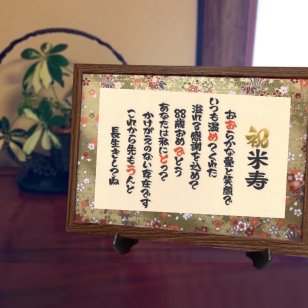 祝米寿
おおらかな愛と笑顔で
いつも温めてくれた
溢れる感謝を込めて
88歳おめでとう
あなたは私にとって
かけがえのない存在です
これから先もうんと
長生きしてね